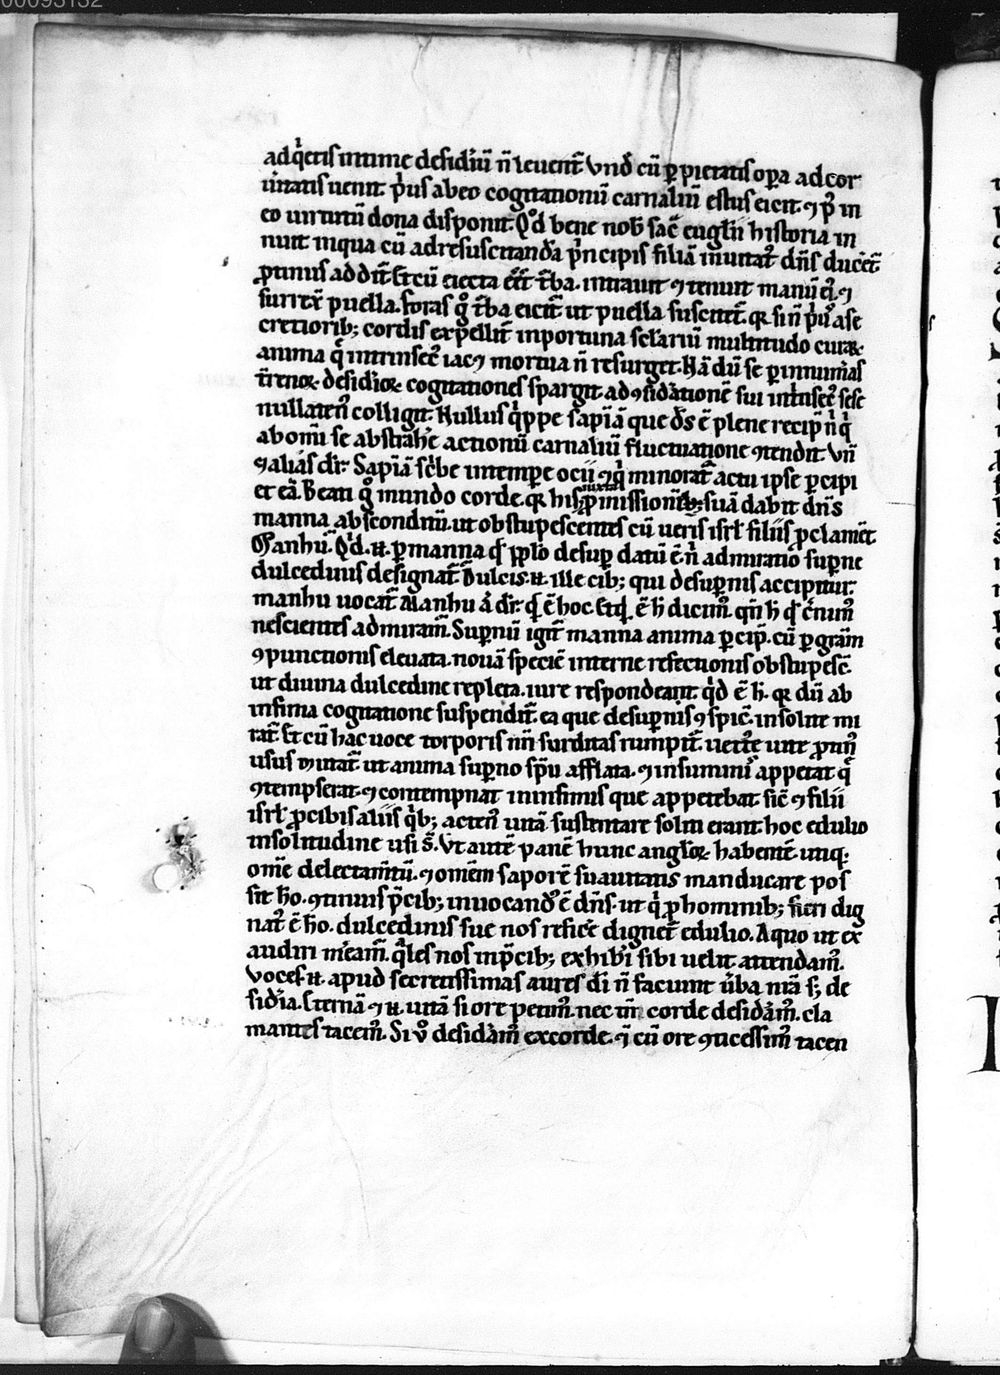 00093132
adq̇etis intime desid̾iũ ñ leuent̃ Vnd̾ cũ ꝑ pietatis oꝑa ad cor
uenit p̾us ab eo cogitationũ carnaliũ estus eicit ⁊ p̾ in
eo uirtutũ dona disponit. Qd̾ bene nob̾ sac̃ euglii historia in
nuit in qua cũ ad resuscitandã p̾ncipis filiã inuitat̃ dñs
adduñt Et cũ eiecta eẽt t̾ba. intrauit ⁊ tenuit manũ ei᷒ ⁊
surrex̃ puella. foras g̊ t̾ba eicit̃ ut puella suscitet̃. qꝛ si ñ p̾us a se
cretiorib; cordis expellit̃ inportuna sec̃lariũ multitudo curaꝝ.
anima q̇ intrinsec᷒ iacꝫ mortua ñ resurget. Nã dũ se ꝑ innum̾as
t̾renoꝝ desid̾ioꝝ cogitationes spargit. ad ꝯsid̾ationẽ sui int̾nsec᷒ sese
nullaten᷒ colligit. Nullus q̇ppe sapiã que d̾s ẽ plene recip̃ ñ q̇
ab omi se abstrah̾e actionũ carnaliũ fluctuatione ꝯtendit. Vñ
⁊ alias dr̃. Sapiã sc̾be in tempe ocii ⁊ q̇ minorat̃ actu ipse ꝑcipi
et eã. Beati g̊ mundo corde. qꝛ his iuxta p̾missionẽ suã dabit dñs
manna absconditũ. ut obstupescentes cũ ueris isrł filiis ꝓclament
Manhu. Qd̾. n̄. ꝑ manna qd̾ pplo desuꝑ datũ ẽ. ñ admiratio suꝑne
dulcedinis designat̃. Dulcis. n̄. ille cib; qui desuꝑnis accipitur.
manhu uocat̃ Manhu ã dr̃. qd̾ ẽ hoc. Et qd̾ ẽ h̾ dicim᷒. qñ h̾ qd̾ c̾nim᷒
nescientes admiram̃. Suꝑnũ igit̃ manna anima ꝑcip̃. cũ ꝑ grãm
ꝯpunctionis eleuata. nouã speciẽ interne refectionis obstupesc̃.
ut diuina dulcedine repleta. iure respondeant. qd̾ ẽ h̾. qꝛ dũ ab
infima cogitatione suspendit̃. ea que desuꝑnis ꝯspic̃. insolite mi
rat̃ Et cũ hac uoce torporis nr̃i surditas rumpit̃. uet̾te uite ꝓtin᷒
usus mutat̃. ut anima suꝑno sp̃u afflata. ⁊ in summis appetat q̇
ꝯtempserat ⁊ contempnat in infimis que appetebat sic̃ ⁊ filii
isrł p̾cibis aliis q̇b; acten᷒ uitã sustentare soliti erant. hoc edulio
in solitudine usi s̃. Vt aute panẽ hunc angłoꝝ habentẽ in q̇.
omẽ delectam̃tũ. ⁊ omẽm saporẽ suauitatis manducare pos
sit h̊o. ꝯtinuis p̾cib; inuocand᷒ ẽ dñs. ut q̇ ꝓ hominib; fieri dig
nat᷒ ẽ h̊o. dulcedinis sue nos refic̾e dignet̃ edulio. A quo ut ex
audiri m̾eam̃. q̇les nos in p̾cib; exhib̾i sibi uelit attendam̃.
Voces. n̄. apud secretissimas aures di ñ faciunt u̾ba nr̃a s; de
sid̾ia. Et̾nã ⁊. n̄. uitã si ore petim᷒. nec tñ corde desid̾am᷒. cla
mantes tacem᷒. Si u̾ desid̾am᷒ ex corde. ⁊ cũ ore ꝯticessim᷒ tacen